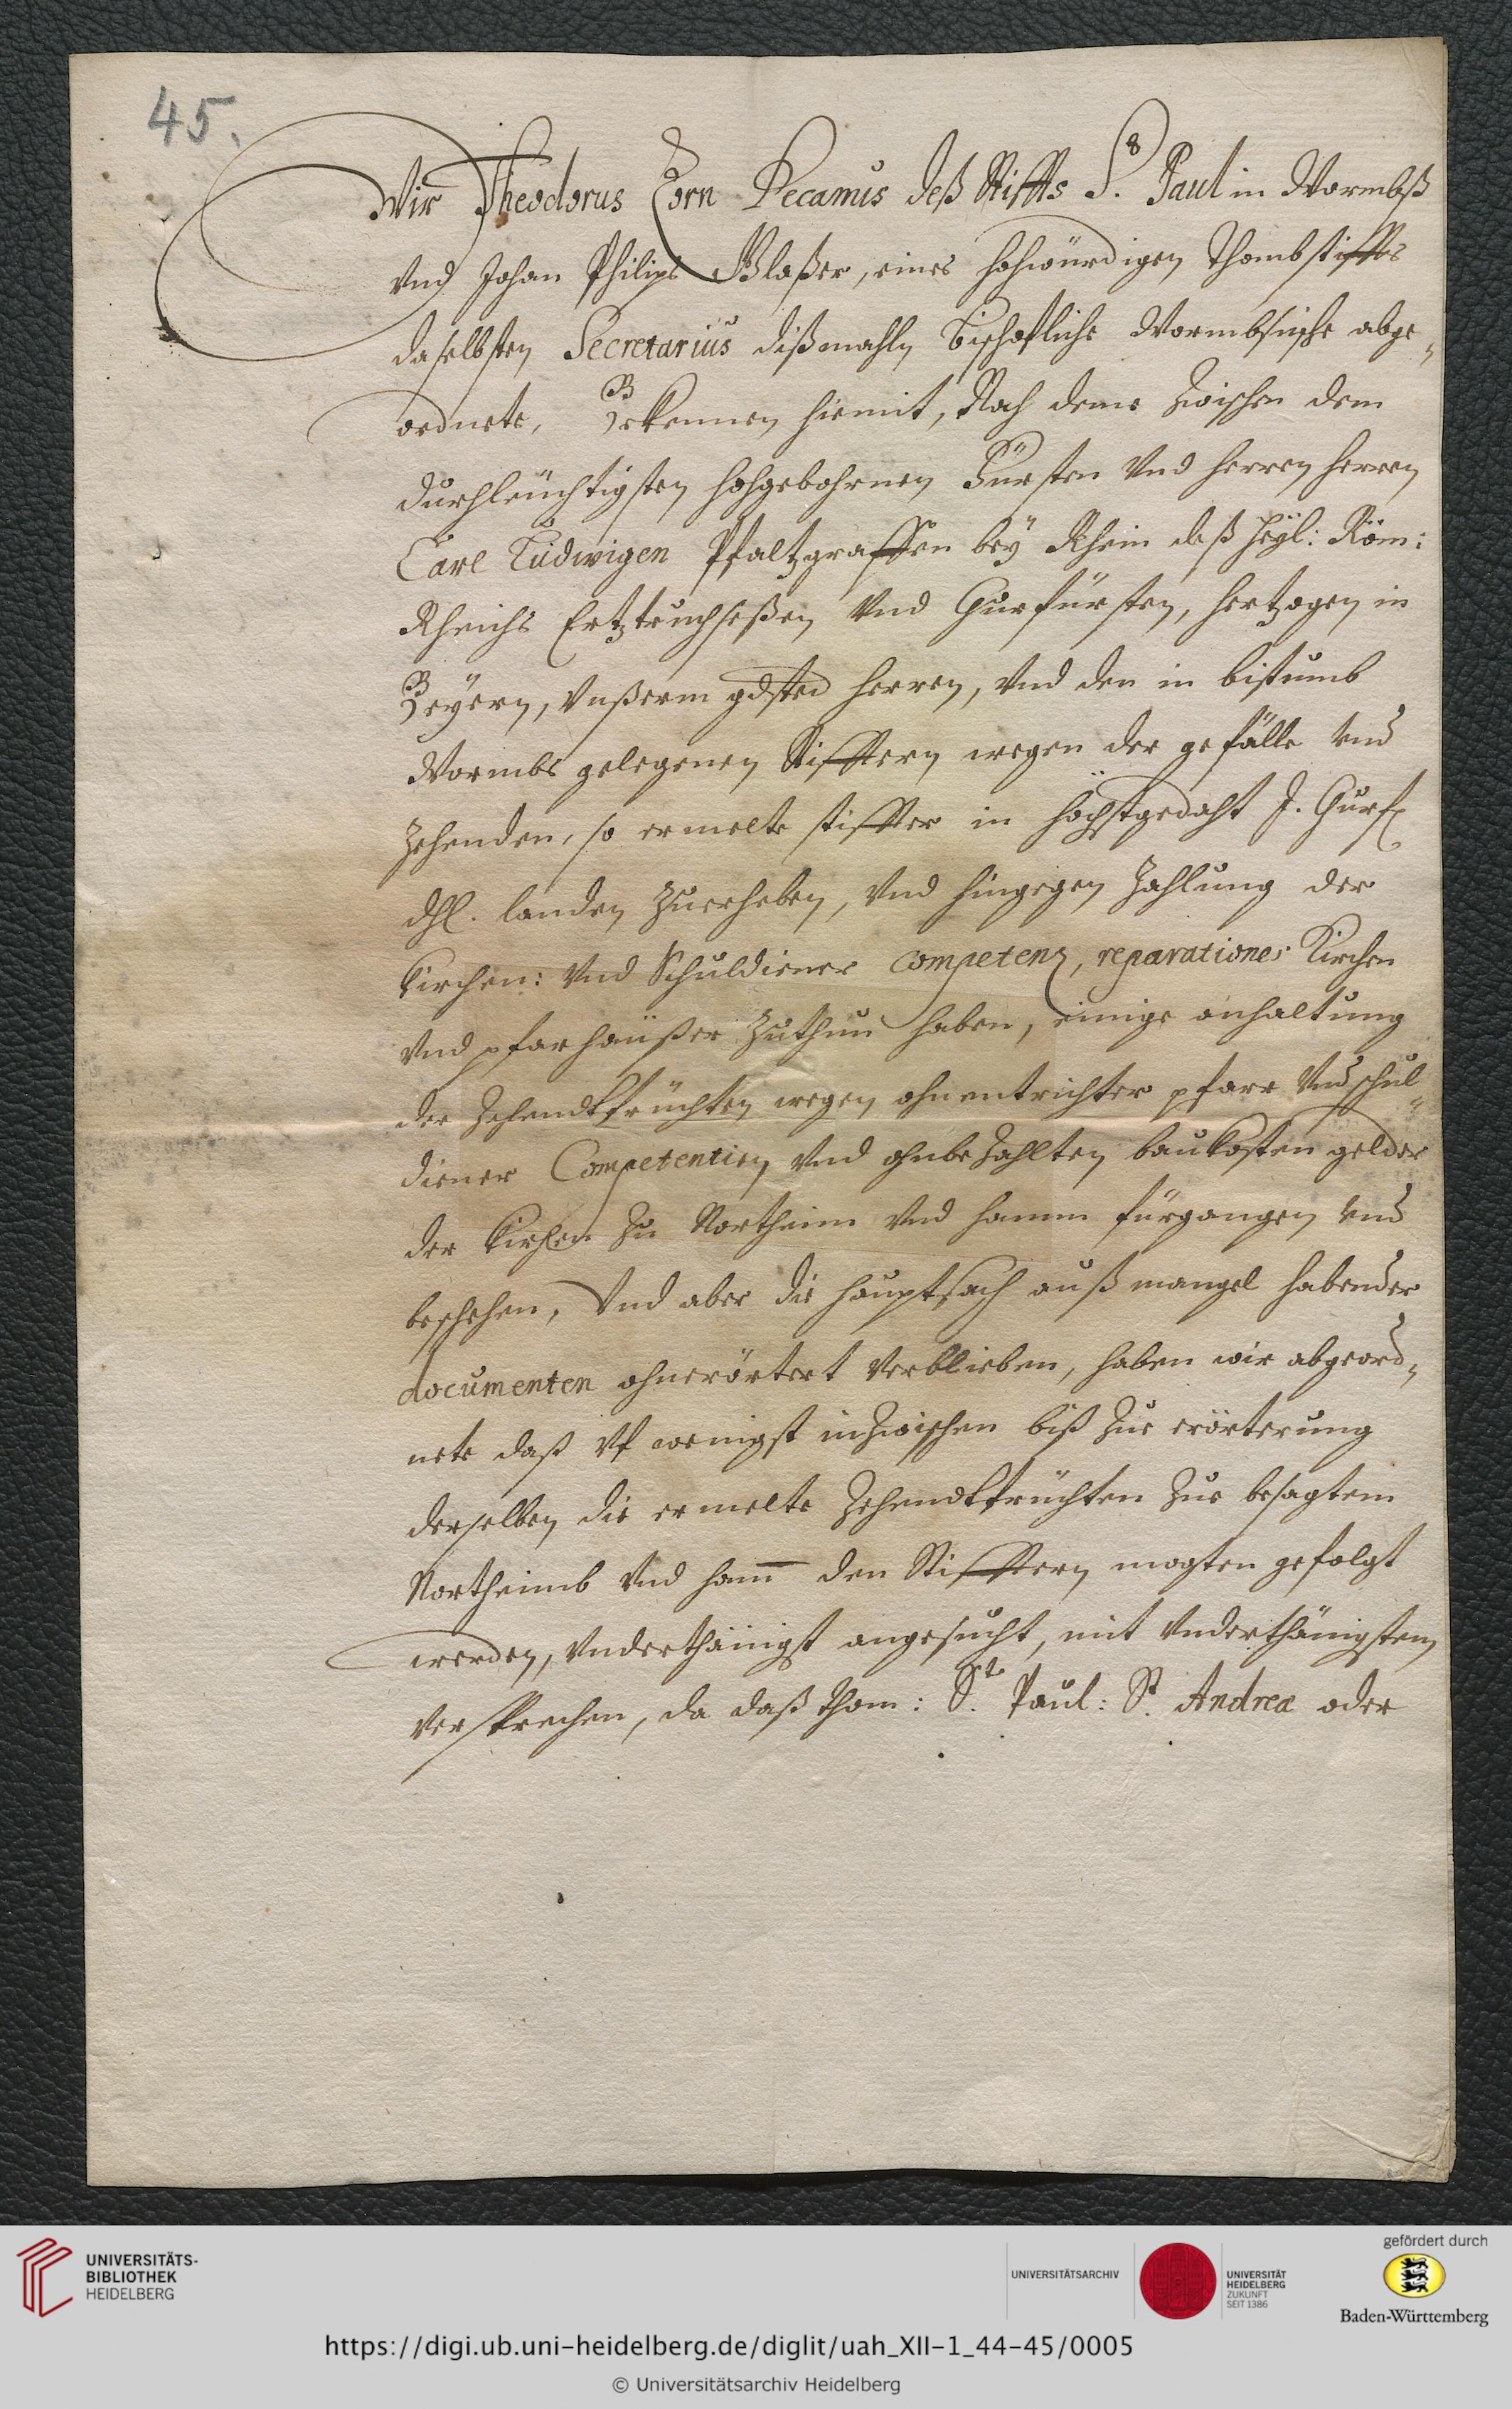 45.
Wir Theodorus Corn Decanus deß Stiffts S. Paul in Wormbß
Vnd Johan Philips Blaßer, eines hohwürdigen Thombstiffts
daselbsten Secretarius dißmahln Bischofliche Wormbsische abge„
ordnete, Bekennen hiemit, Nach deme Zwischen dem
durchleuchtigsten hohgebohrnen Fürsten Vnd herren herren
Carl Ludwigen Pfaltzgraffen bey Rhein deß heyl: Röm:
Rheichs Ertztruchseßen Vnd Churfürsten, hertzogen in
Beyern, Vnßerm gdsten herren, Vnd den in bistumb
Wormbs gelegenen Stifftern wegen der gefälle Vnd
Zehenden, so ermelte stiffter in höchstgedaht J. Churf
dhl. landen Zuerheben, Vnd hingegen Zahlung der
Kirchen: Vnd Schuldiener competenz, reparationes Kirchen
Vnd pfarhäußer Zuthun haben, einige anhaltung
der Zehendtfrüchten wegen ohnentrichter pfarr Vnd schul„
diener Competentien Vnd ohnbezahlten baukosten gelder
der Kirchen Zu Northeim Vnd hamm fürgangen Vnd
beschehen, Vnd aber die hauptsach auß mangel habender
documenten ohnerörtert Verblieben, haben wir abgeord„
nete daß Vf wenigst inZwischen biß Zur erörterung
derselben die ermelte Zehendtfrüchten Zue besagtem
Northeimb Vnd ham̅ den Stifftern mögten gefolgt
werden, Vnderthänigst angesucht, mit Vnderthänigstem
Versprechen, da daß thom: St. Paul: St. Andreæ oder
UNIVERSITÄTS-
BIBLIOTHEK
HEIDELBERG
UNIVERSITÄTSARCHIV
UNIVERSITÄT
HEIDELBERG
ZUKUNFT
SEIT 1386
gefördert durch
Baden-Württemberg
https://digi.ub.uni-heidelberg.de/diglit/uah_XII-1_44-45/0005
© Universitätsarchiv Heidelberg